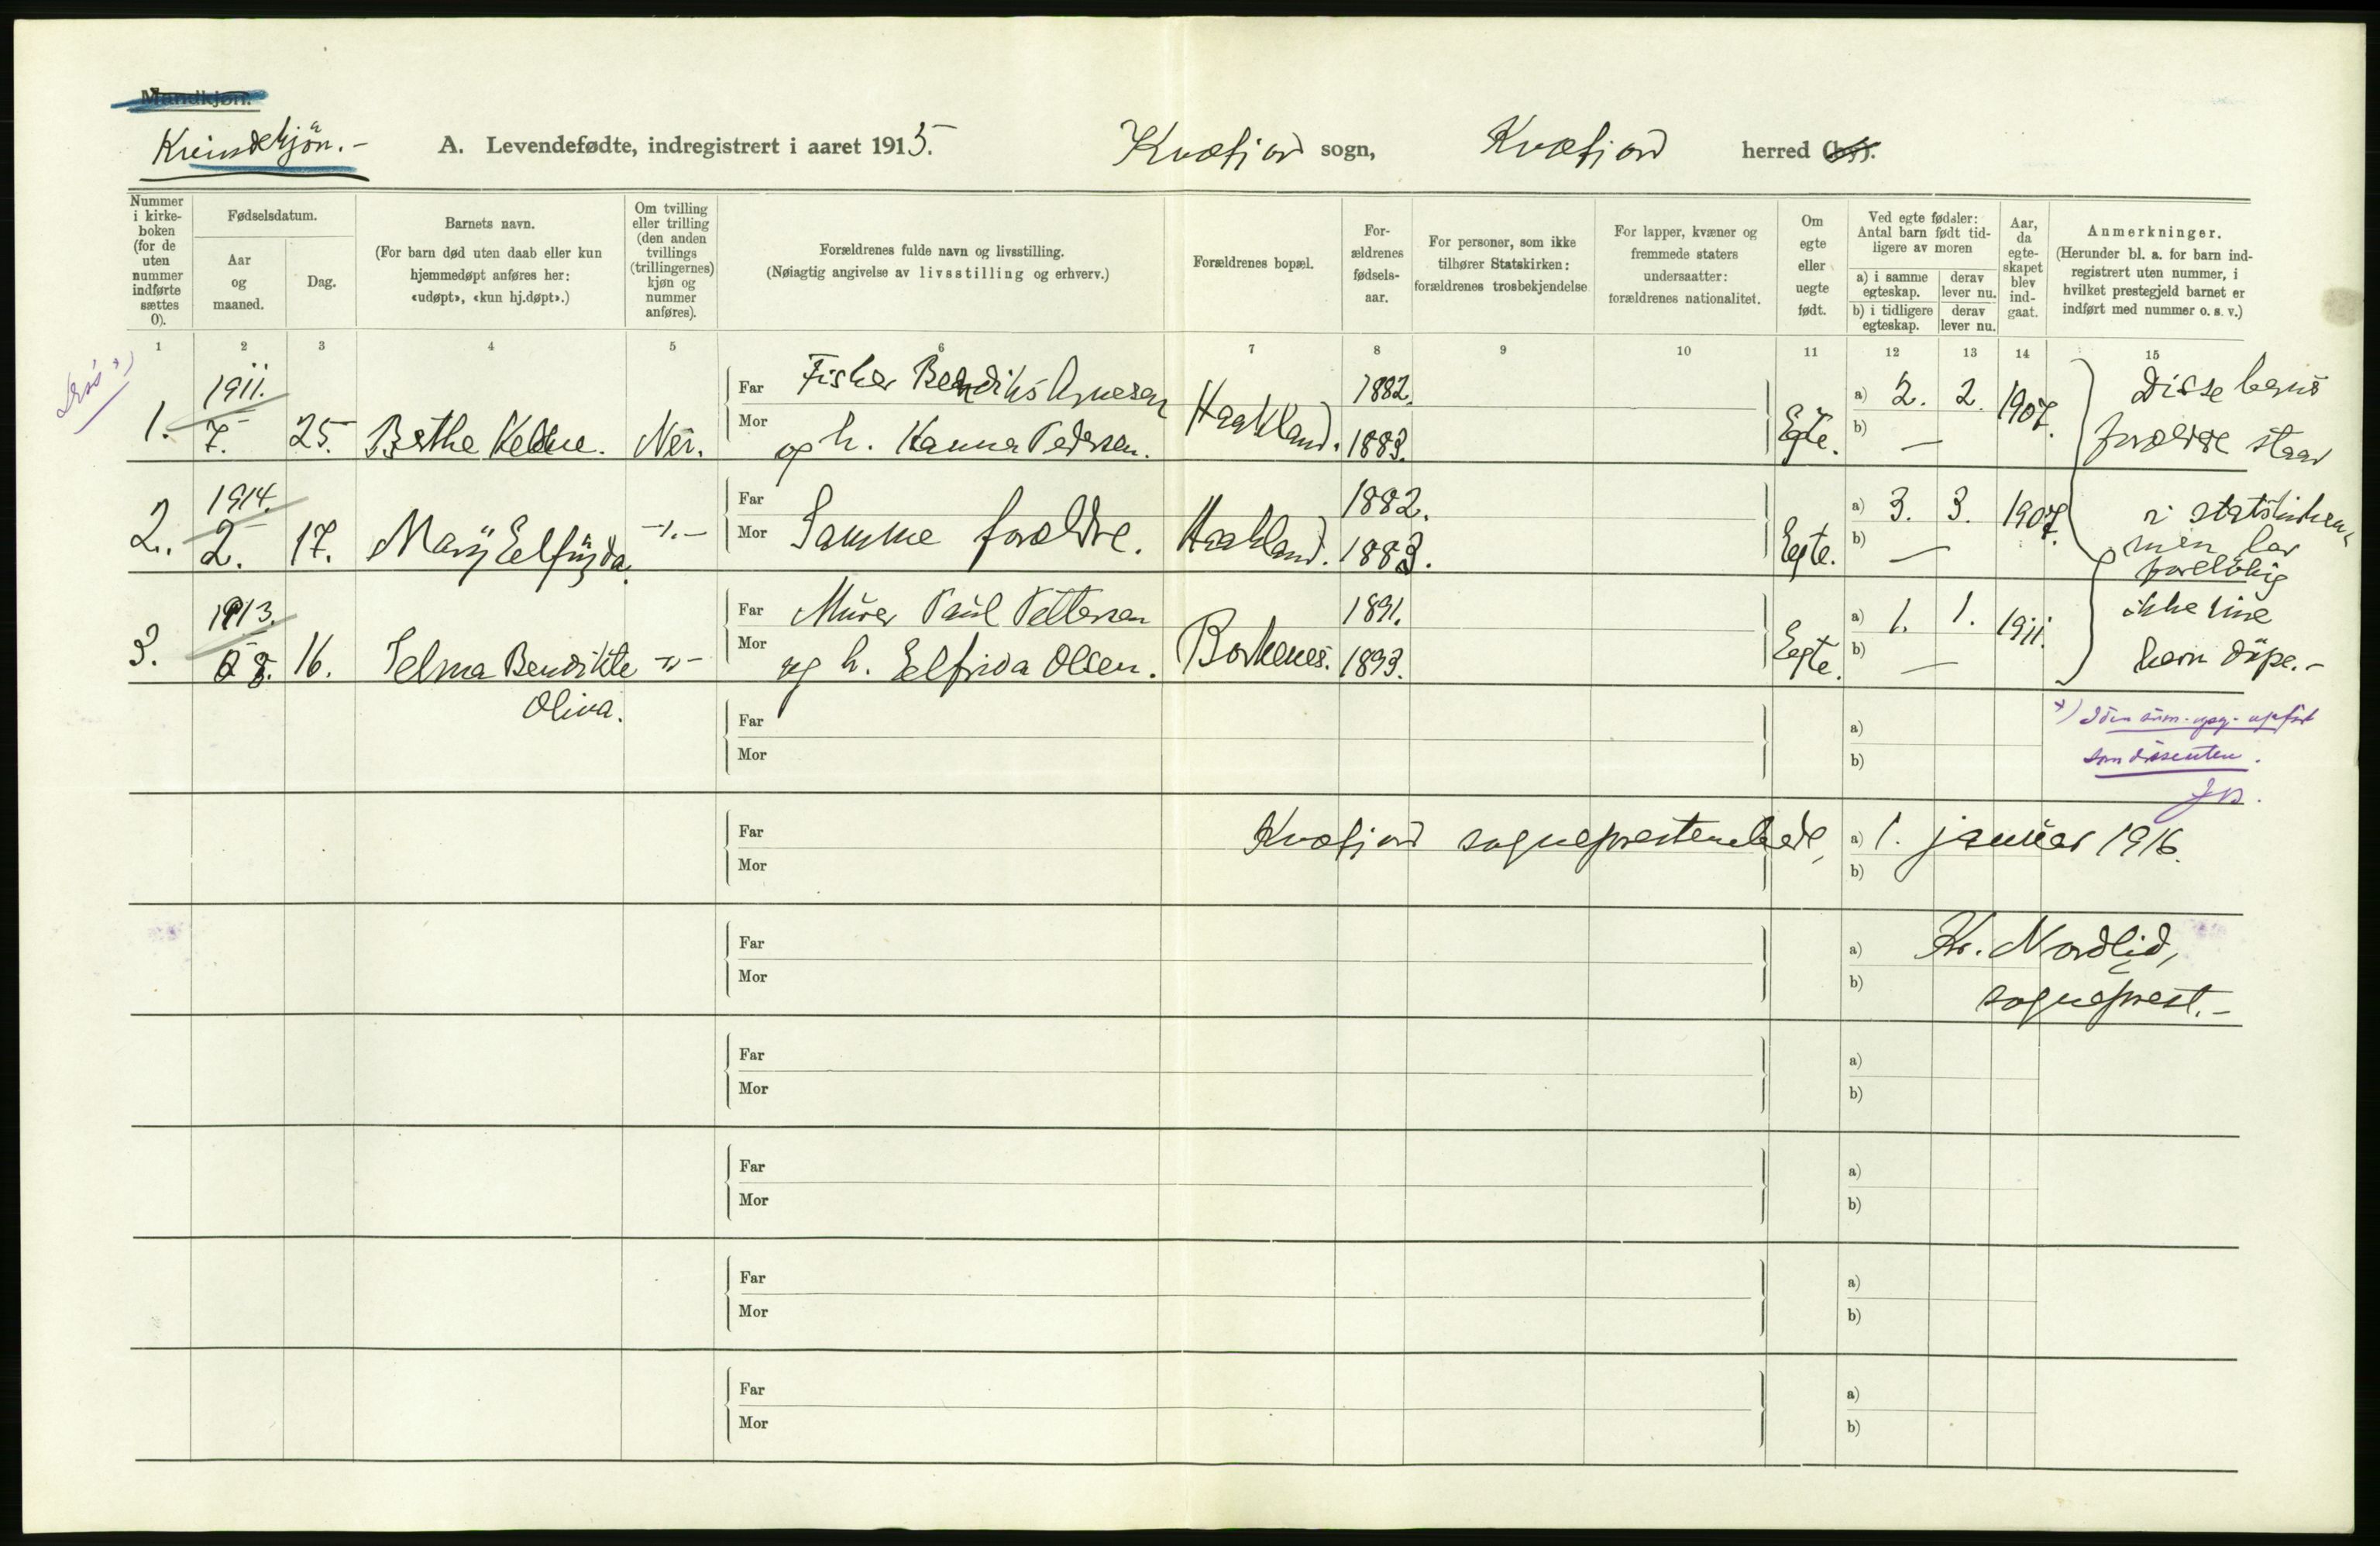 Mandkjøn.
Kvindekjøn.-
A. Levendefødte, indregistrert i aaret 1915. Kvæfjord sogn, Kvæfjord herred (by).
Nummer i kirke-boken (for de uten nummer indførte sættes 0).
Fødselsdatum.
Aar og maaned.
Dag.
Barnets navn.
(For barn død uten daab eller kun hjemmedøpt anføres her: «udøpt», «kun hj.døpt».)
Om tvilling eller trilling (den anden tvillings (trillingernes) kjøn og nummer anføres).
Forældrenes fulde navn og livsstilling.
(Nøiagtig angivelse av livsstilling og erhverv.)
Forældrenes bopæl.
For-ældrenes fødsels-aar.
For personer, som ikke tilhører Statskirken: forældrenes trosbekjendelse
For lapper, kvæner og fremmede staters undersaatter: forældrenes nationalitet.
Om egte eller uegte født.
Ved egte fødsler: Antal barn født tid-ligere av moren
a) i samme egteskap. derav lever nu.
b) i tidligere egteskap. derav lever nu.
Aar, da egte-skapet blev ind-gaat.
Anmerkninger.
(Herunder bl. a. for barn ind-registrert uten nummer, i hvilket prestegjeld barnet er indført med nummer o. s. v.)
1 2 3 4 5 6 7 8 9 10 11 12 13 14 15
1911. Far Fisker Bendiks Arnesen 1882. a) 2. 2. 1907. Disse barns
1. 7. 25. Berthe Nei. Mor og h. Hanna Pedersen. Haakland. 1883. Egte. b) — forældre staar
1914. Far 1882. a) 3. 3. 1907. i statskirken
2. 2. 17. Mary -"- Mor Samme forældre. Haakland. 1883. Egte. b) — men lar
foreløbig
1913. Far Murer Paul Pettersen 1891. a) 1. 1. 1911. ikke sine
3. 8. 16. Selma Bendikte -"- Mor og h. Elfrida Olsen. Borkenes. 1893. Egte. b) — barn døpe.-
Oliva.
Far a) *) I den opført
Mor b) som dissenter.
Far Kvæfjord sogneprestembede, a) 1. januar 1916.
Mor b)
Far a) Kr. Nordlid,
Mor b) sogneprest.-
Far a)
Mor b)
Far a)
Mor b)
Far a)
Mor b)
Far a)
Mor b)